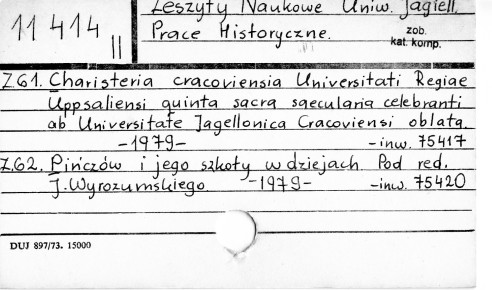 11414 II
Zeszyty Naukowe Uniw. Jagiell.
Prace Historyczne.
zob.
kat. komp.
Z.61. Charisteria cracoviensia Universitati Regiae
Uppsaliensi quinta sacra saecularia celebranti
ab Universitate Jagellonica Cracoviensi oblata.
-1979- -inw. 75417
Z.62. Pińczów i jego szkoły w dziejach. Pod red.
J. Wyrozumskiego -1979- -inw. 75420
DUJ 897/73. 15000